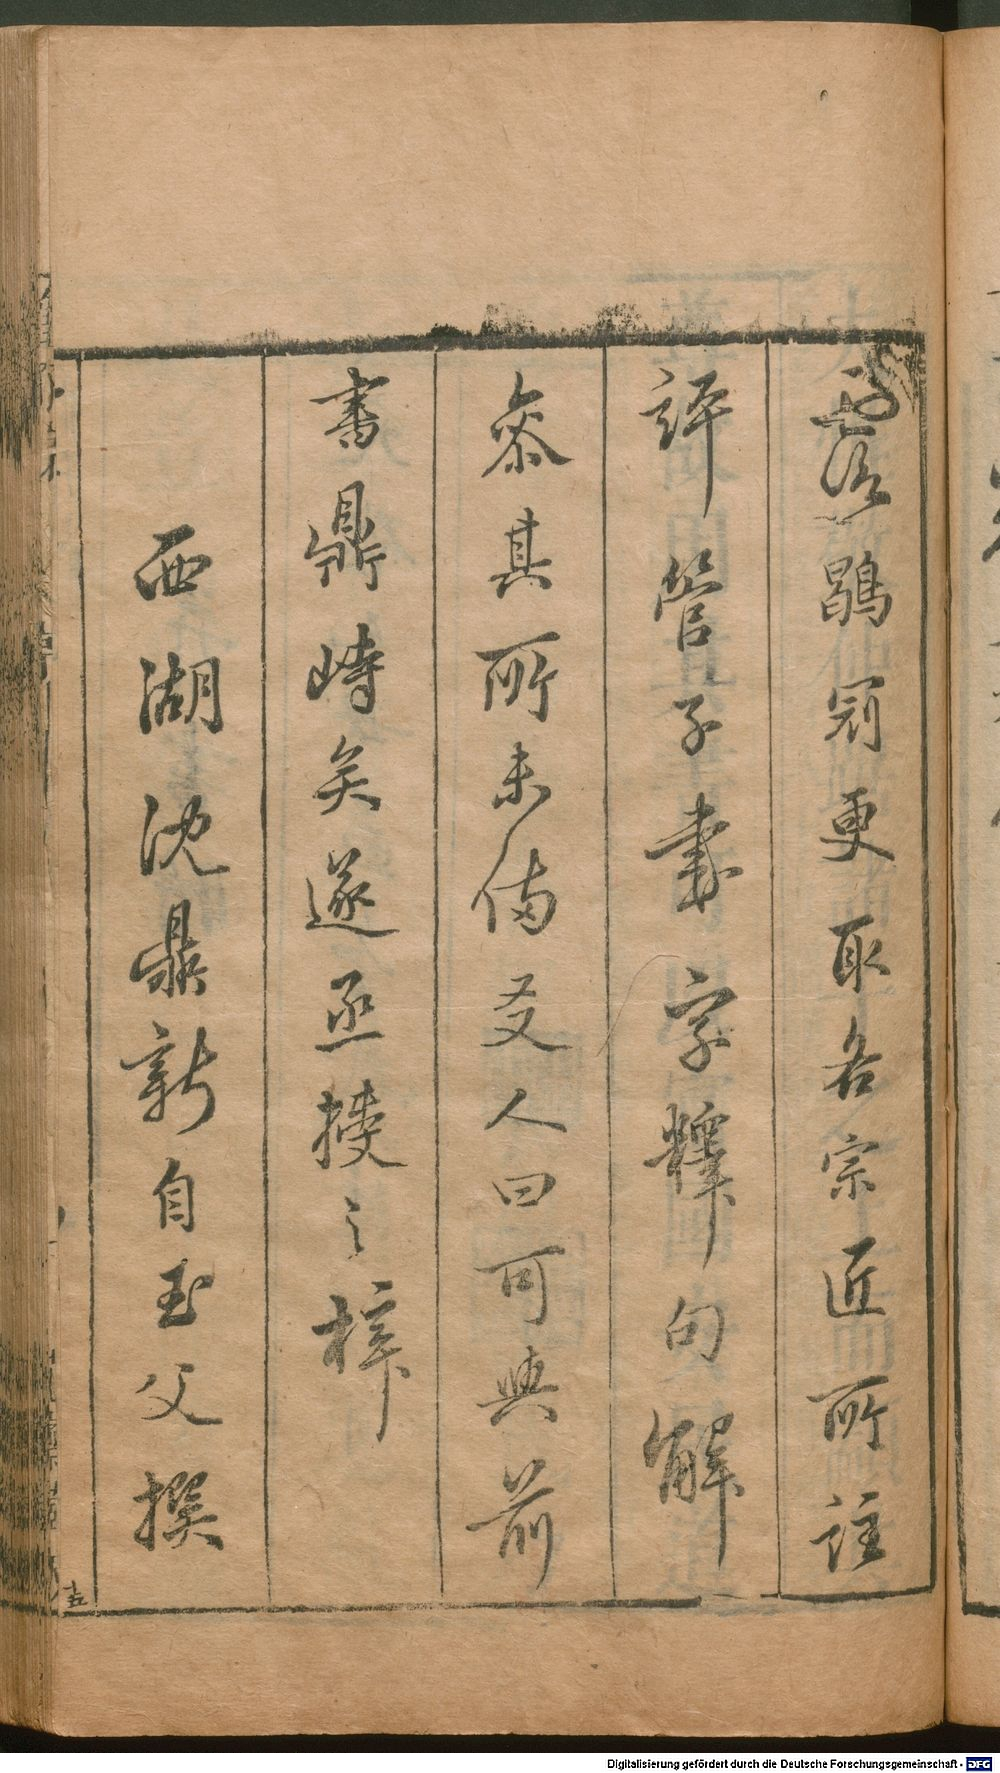 鶡冠更取各宗匠所註
評管子書字釋句解
叅其所未俻友人曰可與前
書鼎峙矣遂亟授之梓
西湖沈鼎新自玉父撰
十五
Digitalisierung gefördert durch die Deutsche Forschungsgemeinschaft - DFG